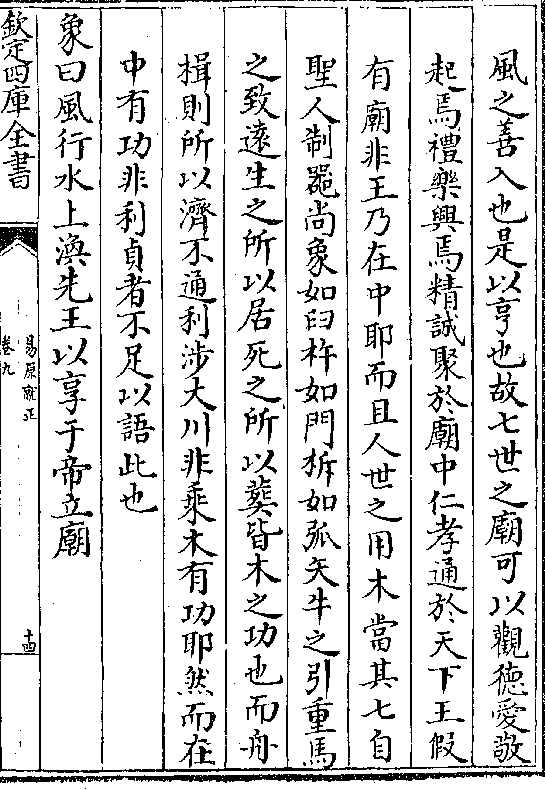 風之善入也是以亨也故七世之廟可以觀德愛敬
起焉禮樂興焉精誠聚於廟中仁孝通於天下王假
有廟非王乃在中耶而且人世之用木當其七自
聖人制器尚象如臼杵如門柝如弧矢牛之引重馬
之致遠生之所以居死之所以葬皆木之功也而舟
楫則所以濟不通利涉大川非乘木有功耶然而在
中有功非利貞者不足以語此也
象曰風行水上渙先王以享于帝立廟
欽定四庫全書
易原就正
卷九
十四